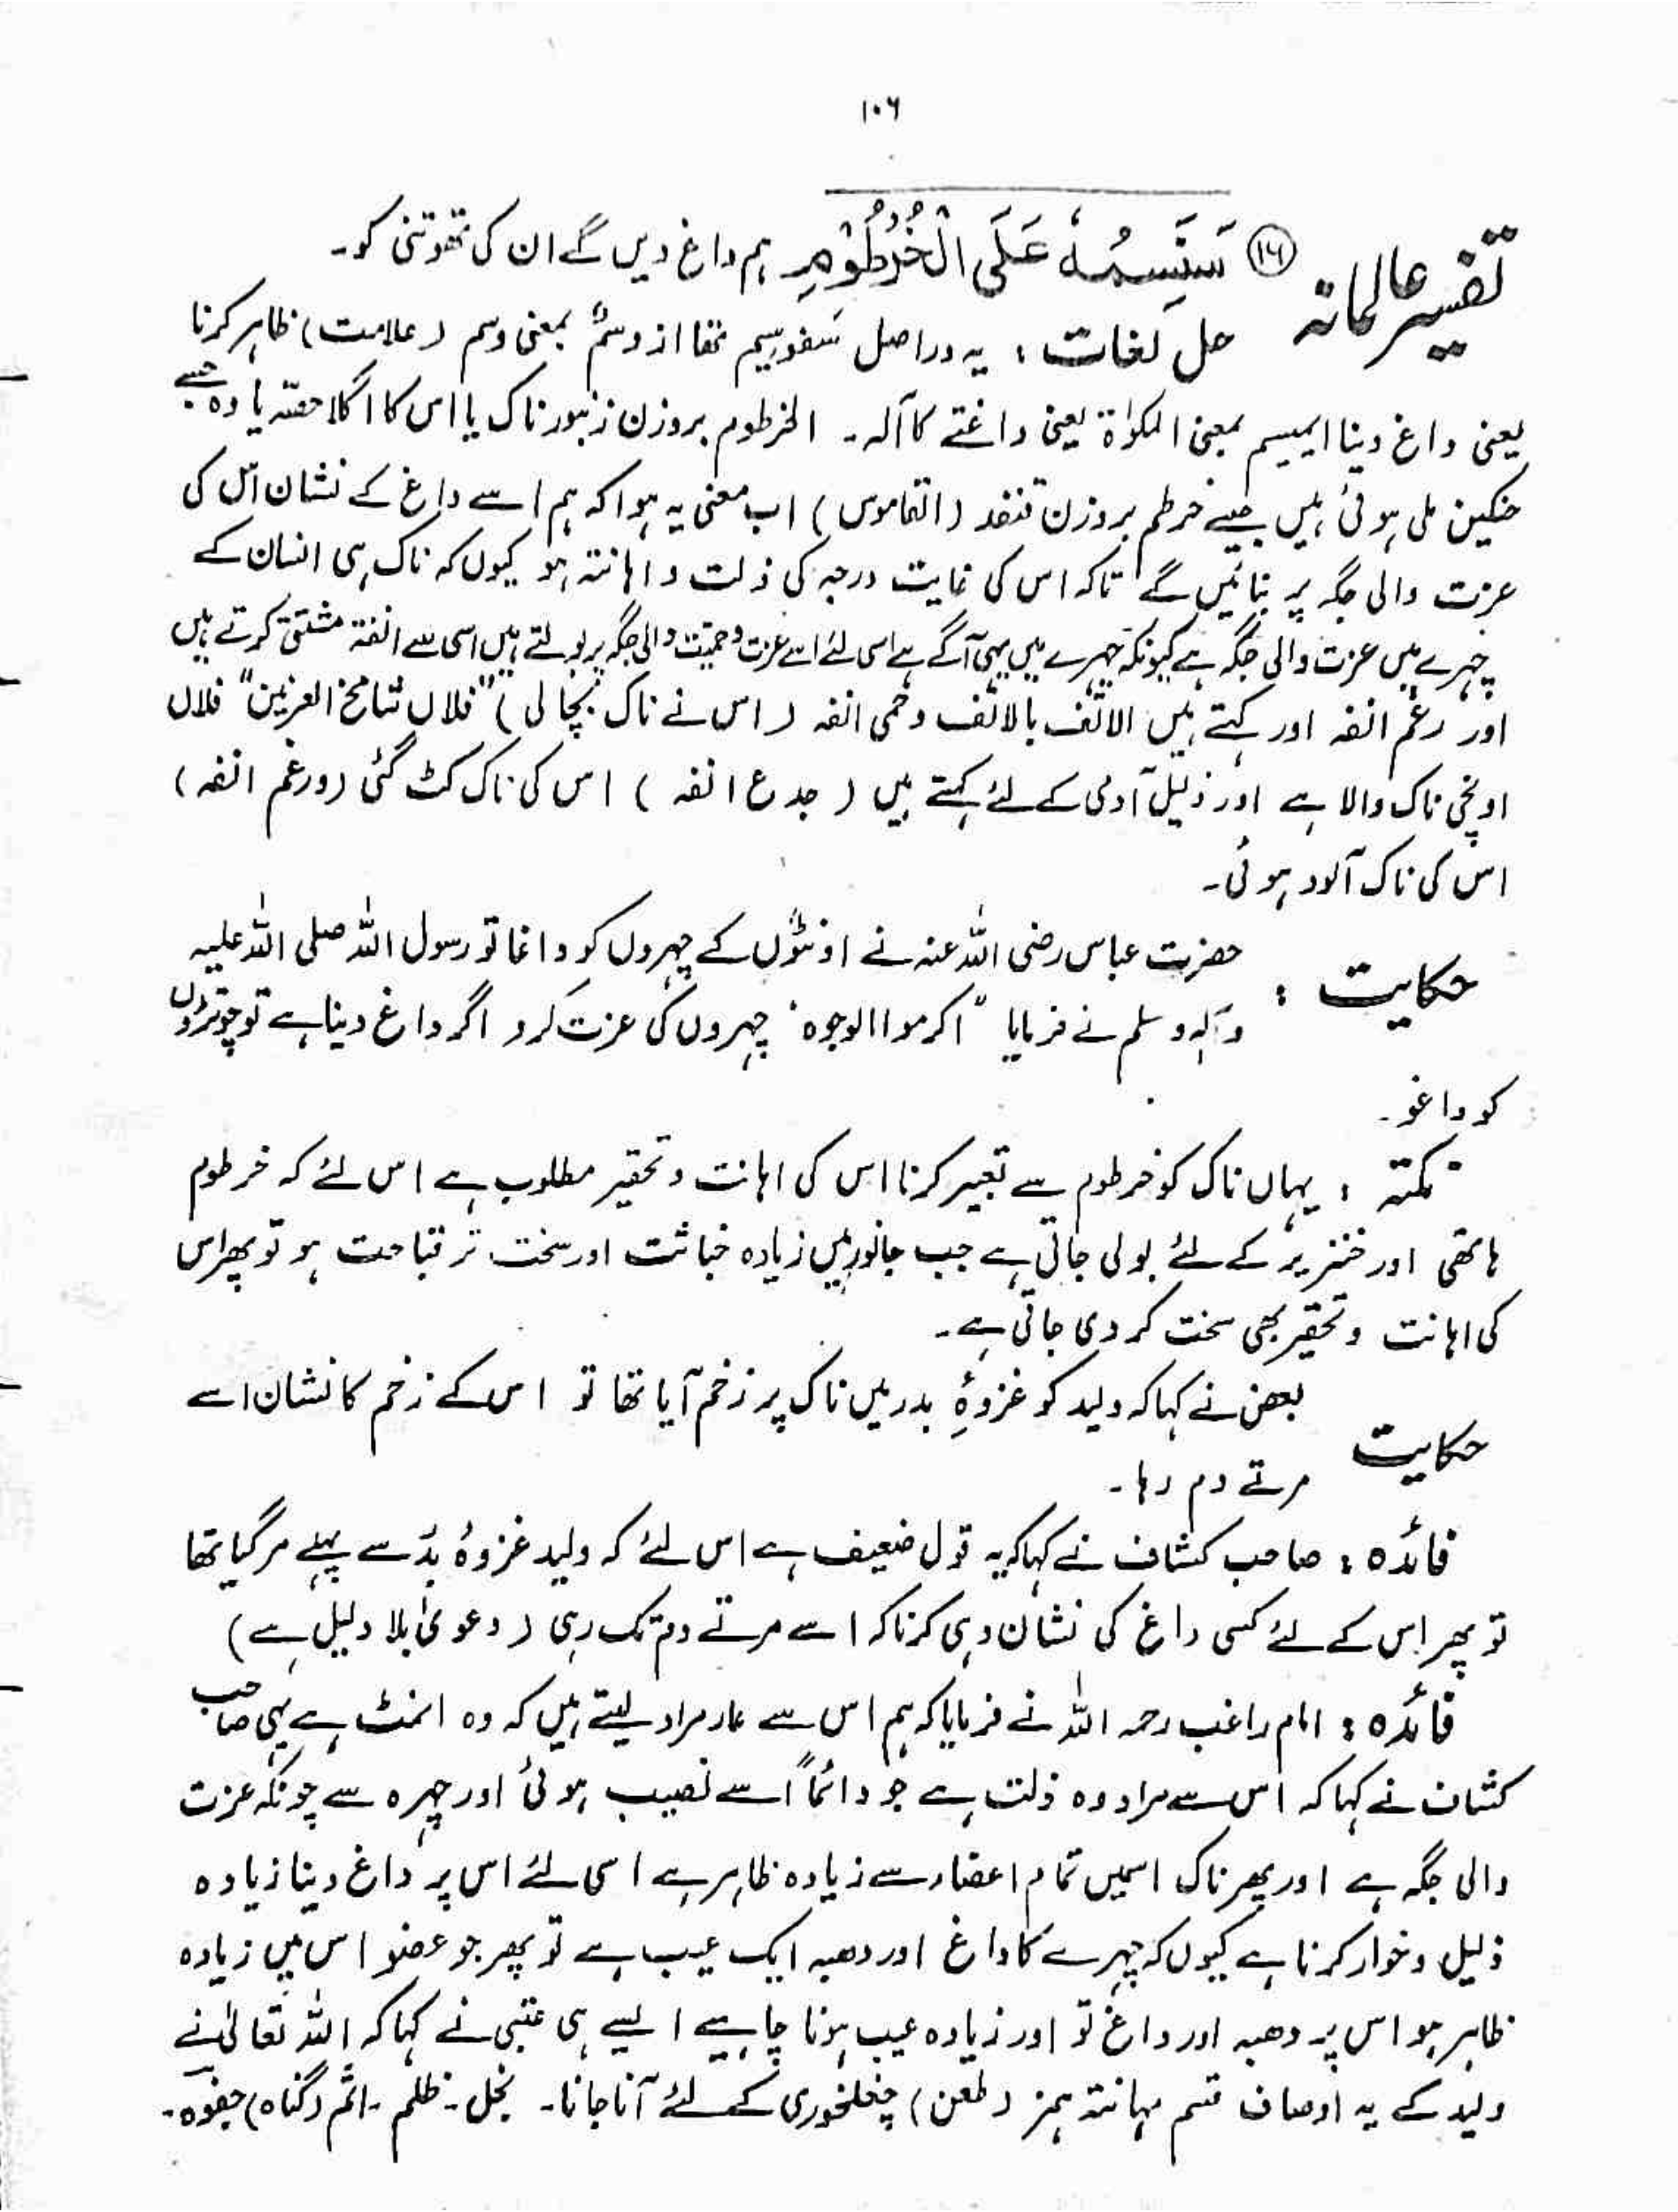 ۱۰۶
تفسیر عالمانہ ⑯ سَنَسِمُہٗ عَلَی الْخُرْطُوْمِ ہم داغ دیں گے ان کی تھوتنی کو۔
حل لغات : یہ دراصل سَفوسیم تھا از وسمٌ بمعنی وسم (علامت) ظاہر کرنا
یعنی داغ دینا المیسم بمعنی المکواۃ یعنی داغنے کا آلہ۔ الخرطوم بروزن زنبور ناک یا اس کا اگلا حصّہ یا وہ جسے
حنکین ملی ہوئی ہیں جیسے خرطم بروزن قنفذ (القاموس) اب معنی یہ ہوا کہ ہم اسے داغ کے نشان اس کی
عزت والی جگہ پر بنائیں گے تاکہ اس کی غایت درجہ کی ذلت و اہانتہ ہو کیوں کہ ناک ہی انسان کے
چہرے میں عزت والی جگہ ہے کیونکہ چہرے میں یہی آگے ہے اسی لئے اسے عزت و حمیّت والی جگہ پر بولتے ہیں اسی سے انفۃ مشتق کرتے ہیں
اور رغم انفہ اور کہتے ہیں الانف بالانف وحمی انفہ (اس نے ناک بچالی) "فلاں شامخ العرنین" فلاں
اونچی ناک والا ہے اور ذلیل آدمی کے لئے کہتے ہیں (جدع انفہ) اس کی ناک کٹ گئی (ورغم انفہ)
اس کی ناک آلود ہوئی۔
حکایت : حضرت عباس رضی اللہ عنہ نے اونٹوں کے چہروں کو داغا تو رسول اللہ صلی اللہ علیہ
وآلہ وسلم نے فرمایا "اکرموا الوجوہ" چہروں کی عزت کرو اگر داغ دینا ہے تو چوتڑوں
کو داغو۔
نکتہ : یہاں ناک کو خرطوم سے تعبیر کرنا اس کی اہانت و تحقیر مطلوب ہے اس لئے کہ خرطوم
ہاتھی اور خنزیر کے لئے بولی جاتی ہے جب جانور میں زیادہ خباثت اور سخت تر قباحت ہو تو پھر اس
کی اہانت و تحقیر بھی سخت کر دی جاتی ہے۔
حکایت بعض نے کہا کہ ولید کو غزوۂ بدر میں ناک پر زخم آیا تھا تو اس کے زخم کا نشان اسے
مرتے دم رہا۔
فائدہ : صاحب کشاف نے کہا کہ یہ قول ضعیف ہے اس لئے کہ ولید غزوۂ بدر سے پہلے مرگیا تھا
تو پھر اس کے لئے کسی داغ کی نشان دہی کرنا کہ اسے مرتے دم تک رہی (دعویٰ بلا دلیل ہے)
فائدہ : امام راغب رحمہ اللہ نے فرمایا کہ ہم اس سے عار مراد لیتے ہیں کہ وہ انمٹ ہے یہی صاحب
کشاف نے کہا کہ اس سے مراد وہ ذلت ہے جو دائماً اسے نصیب ہوئی اور چہرہ سے چونکہ عزت
والی جگہ ہے اور پھر ناک اسمیں تمام اعضاء سے زیادہ ظاہر ہے اسی لئے اس پر داغ دینا زیادہ
ذلیل و خوار کرنا ہے کیوں کہ چہرے کا داغ اور دھبہ ایک عیب ہے تو پھر جو عضو اس میں زیادہ
ظاہر ہو اس پر دھبہ اور داغ تو اور زیادہ عیب ہونا چاہیے ایسے ہی عتبی نے کہا کہ اللہ تعالیٰ نے
ولید کے یہ اوصاف قسم مہانتہ ہمز (طعن) چغلخوری کے لئے آنا جانا۔ بخل۔ ظلم۔ اثم (گناہ) جفوہ۔